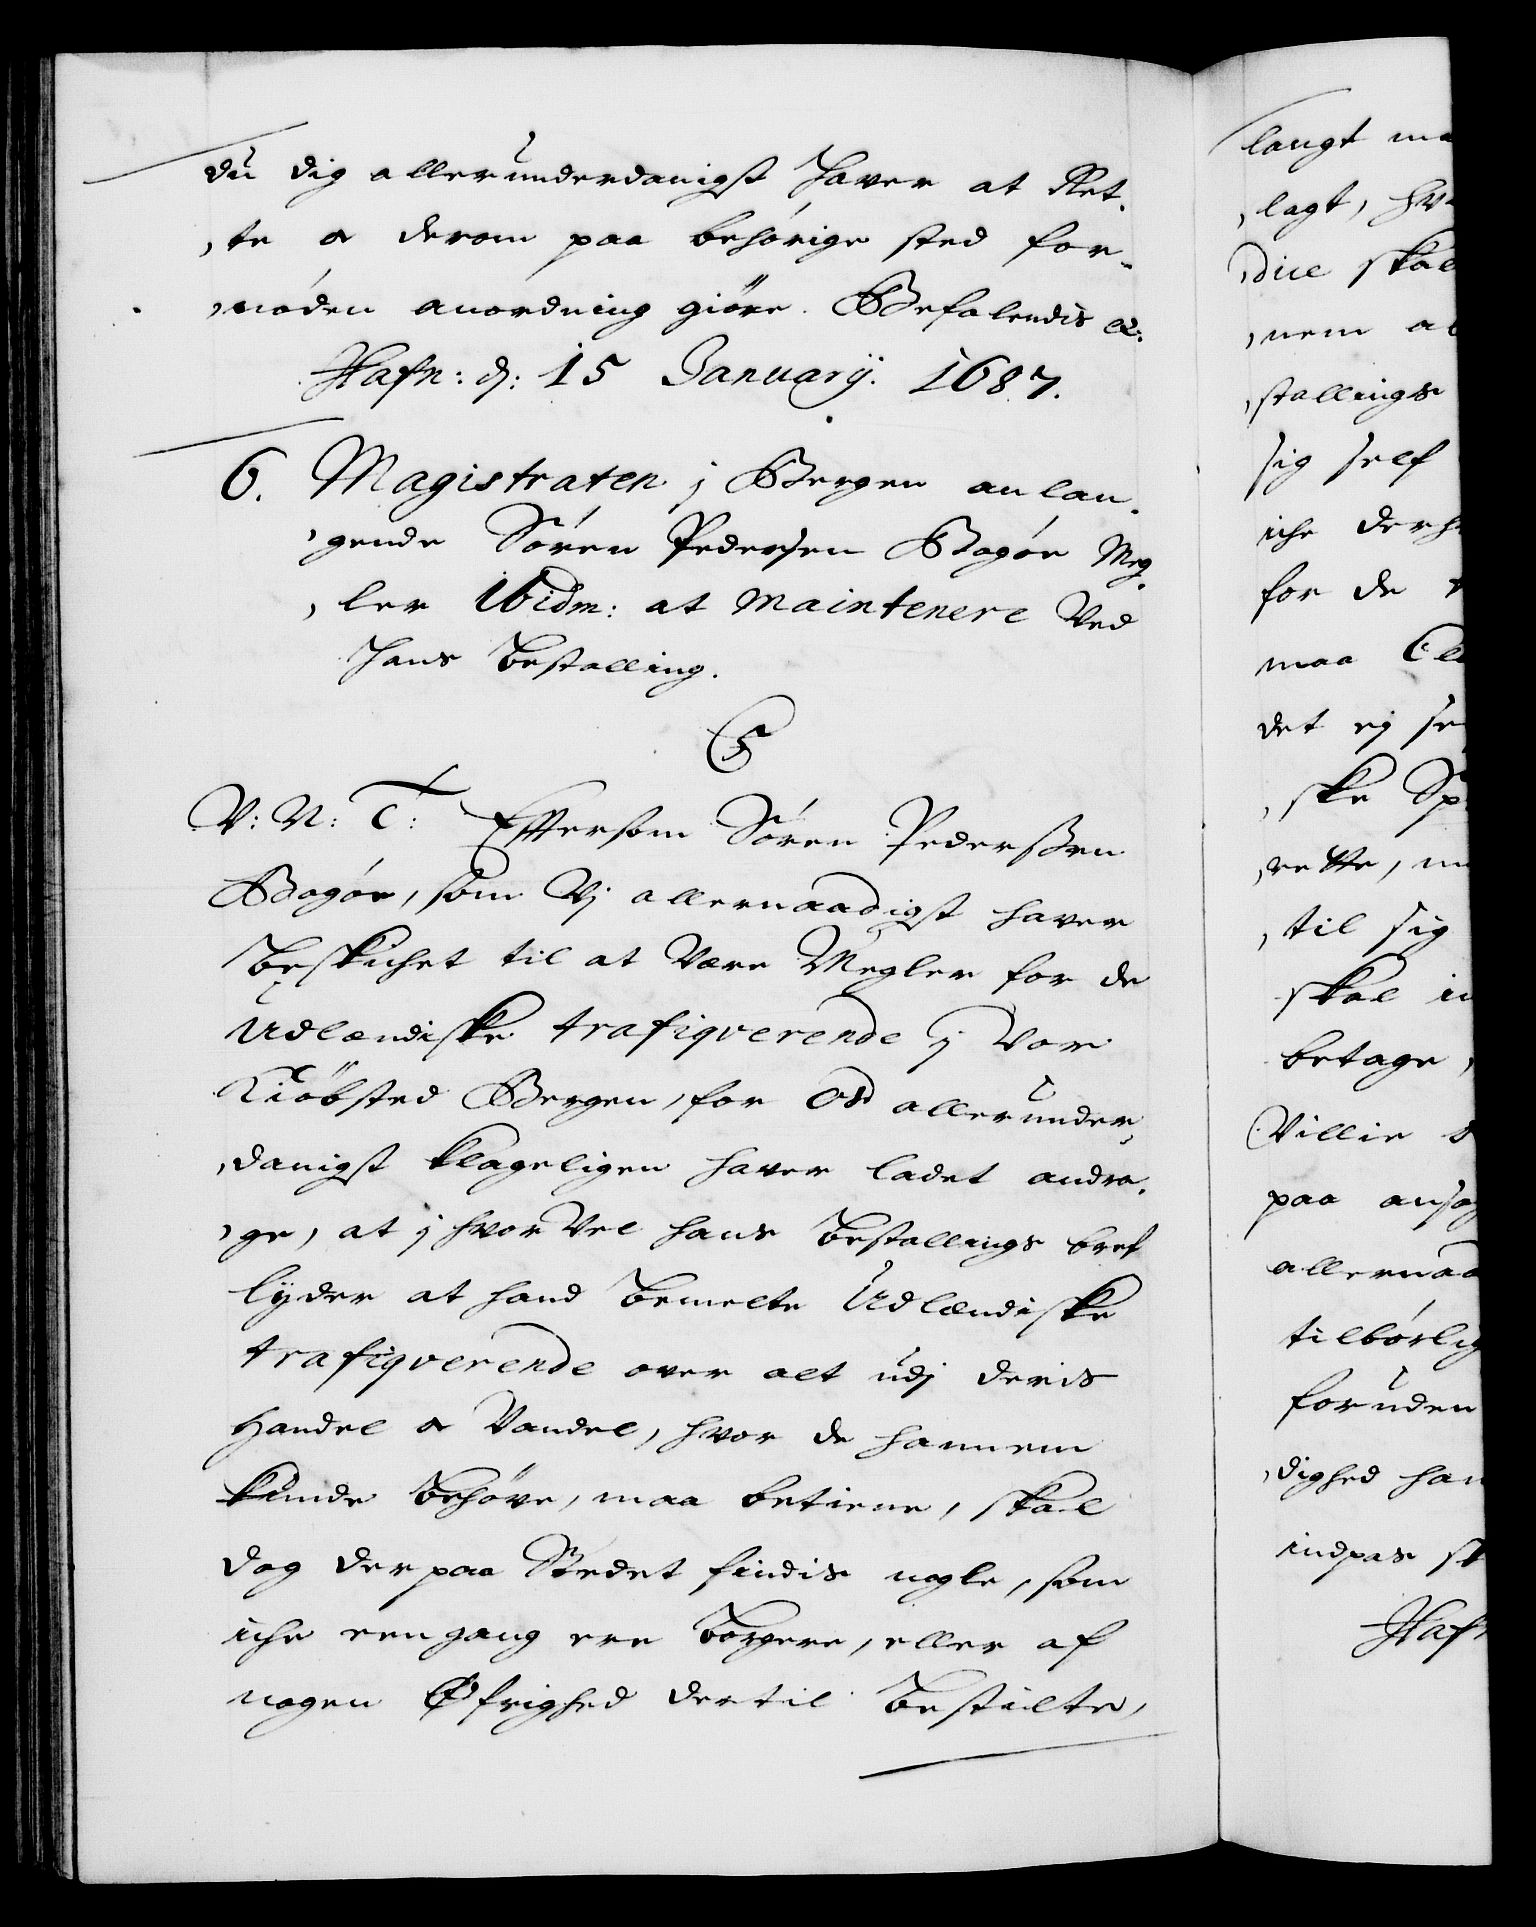 du dig allerunderdanigst haver at Ret¬
,te & derom paa behórige sted for¬
,nöden anordning giöre. Befalendis &:
Hafn: d: 15 Januarij. 1687.
6. Magistraten j Bergen anlan¬
,gende Sören Pedersen Bagór Meg¬
,ler Ibidm: at Maintenere Ved
hans Bestalling.
C5
V: N: T: Effersom Sóren Pederssen
Bagór, som Vj allernaadigst haver
Beskichet til at være Megler for de
Udlændiske trafiqverende j Vor
Kiöbsted Bergen, for Os allerunder¬
,danigst klageligen haver ladet andra¬
,ge, at j hvor Vel hans Bestallings bref
lÿder at hand Bemelte Udlændiske
trafiqverende over alt udj deris
Handel & Vandel, hvor de hannem
kunde Behöve, maa betiene, skal
dog der paa Stedet findis nogle, som
iche een gang ere Borgere, eller af
nogen Øfrighed der til Bestilte,
langt ma
,lagt, hv
,die skal
,nem al
,stallings
sig self
iche derh
for de
maa
det ej se
,ske Sp
,rette, m
,til sig
skal in
betage,
Villie
paa ansø
allernaa
tilbórlig
foruden
,dighed han
indpas st
Hafn